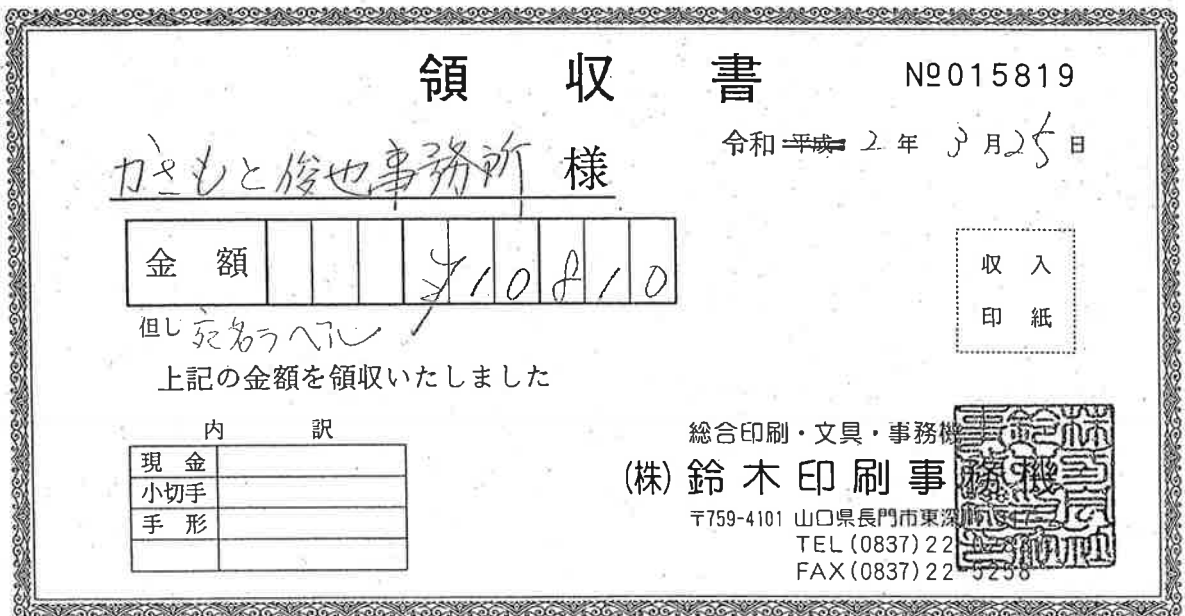 領収書 №015819
令和 平成 2年 3月25日
かさもと俊也事務所 様
金額 ¥10810
但し 宛名ラベル
収入
印紙
上記の金額を領収いたしました
内訳
現金
小切手
手形
総合印刷・文具・事務機
(株)鈴木印刷事務機
〒759-4101 山口県長門市東深
TEL(0837)22
FAX(0837)22-5258